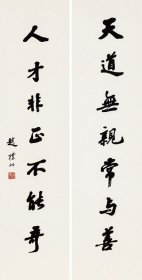 天道無親常与善
人才非正不能奇
趙樸初